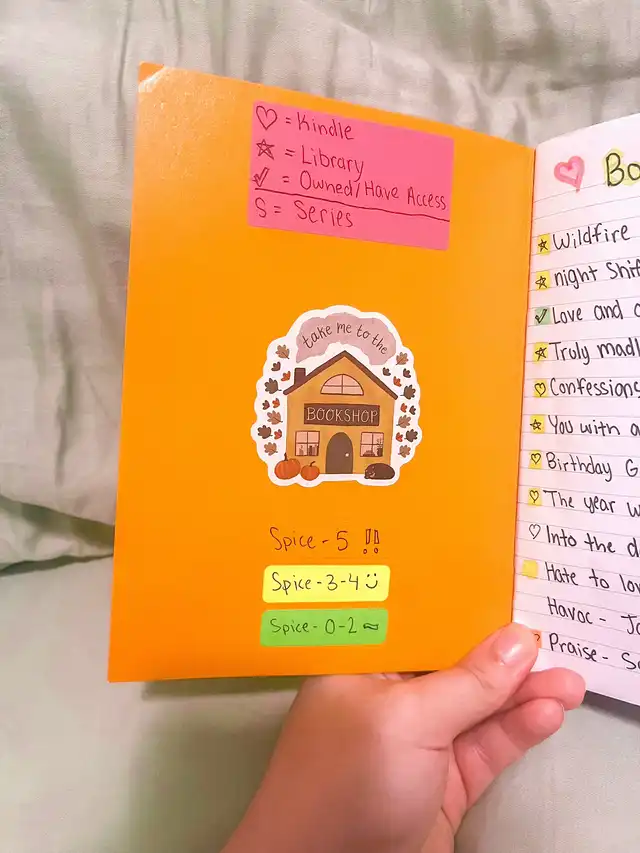 ♡ = Kindle
☆ = Library
✓ = Owned/Have Access
S = Series
take me to the
BOOKSHOP
Spice - 5 !!
Spice - 3-4 ü
Spice - 0-2 ~
♡
☆ Wildfire
☆ night
✓ Love and
☆ Truly
♡ Confessions
☆ You with
♡ Birthday
♡ The year
♡ Into the
Hate to
Havoc -
Praise -